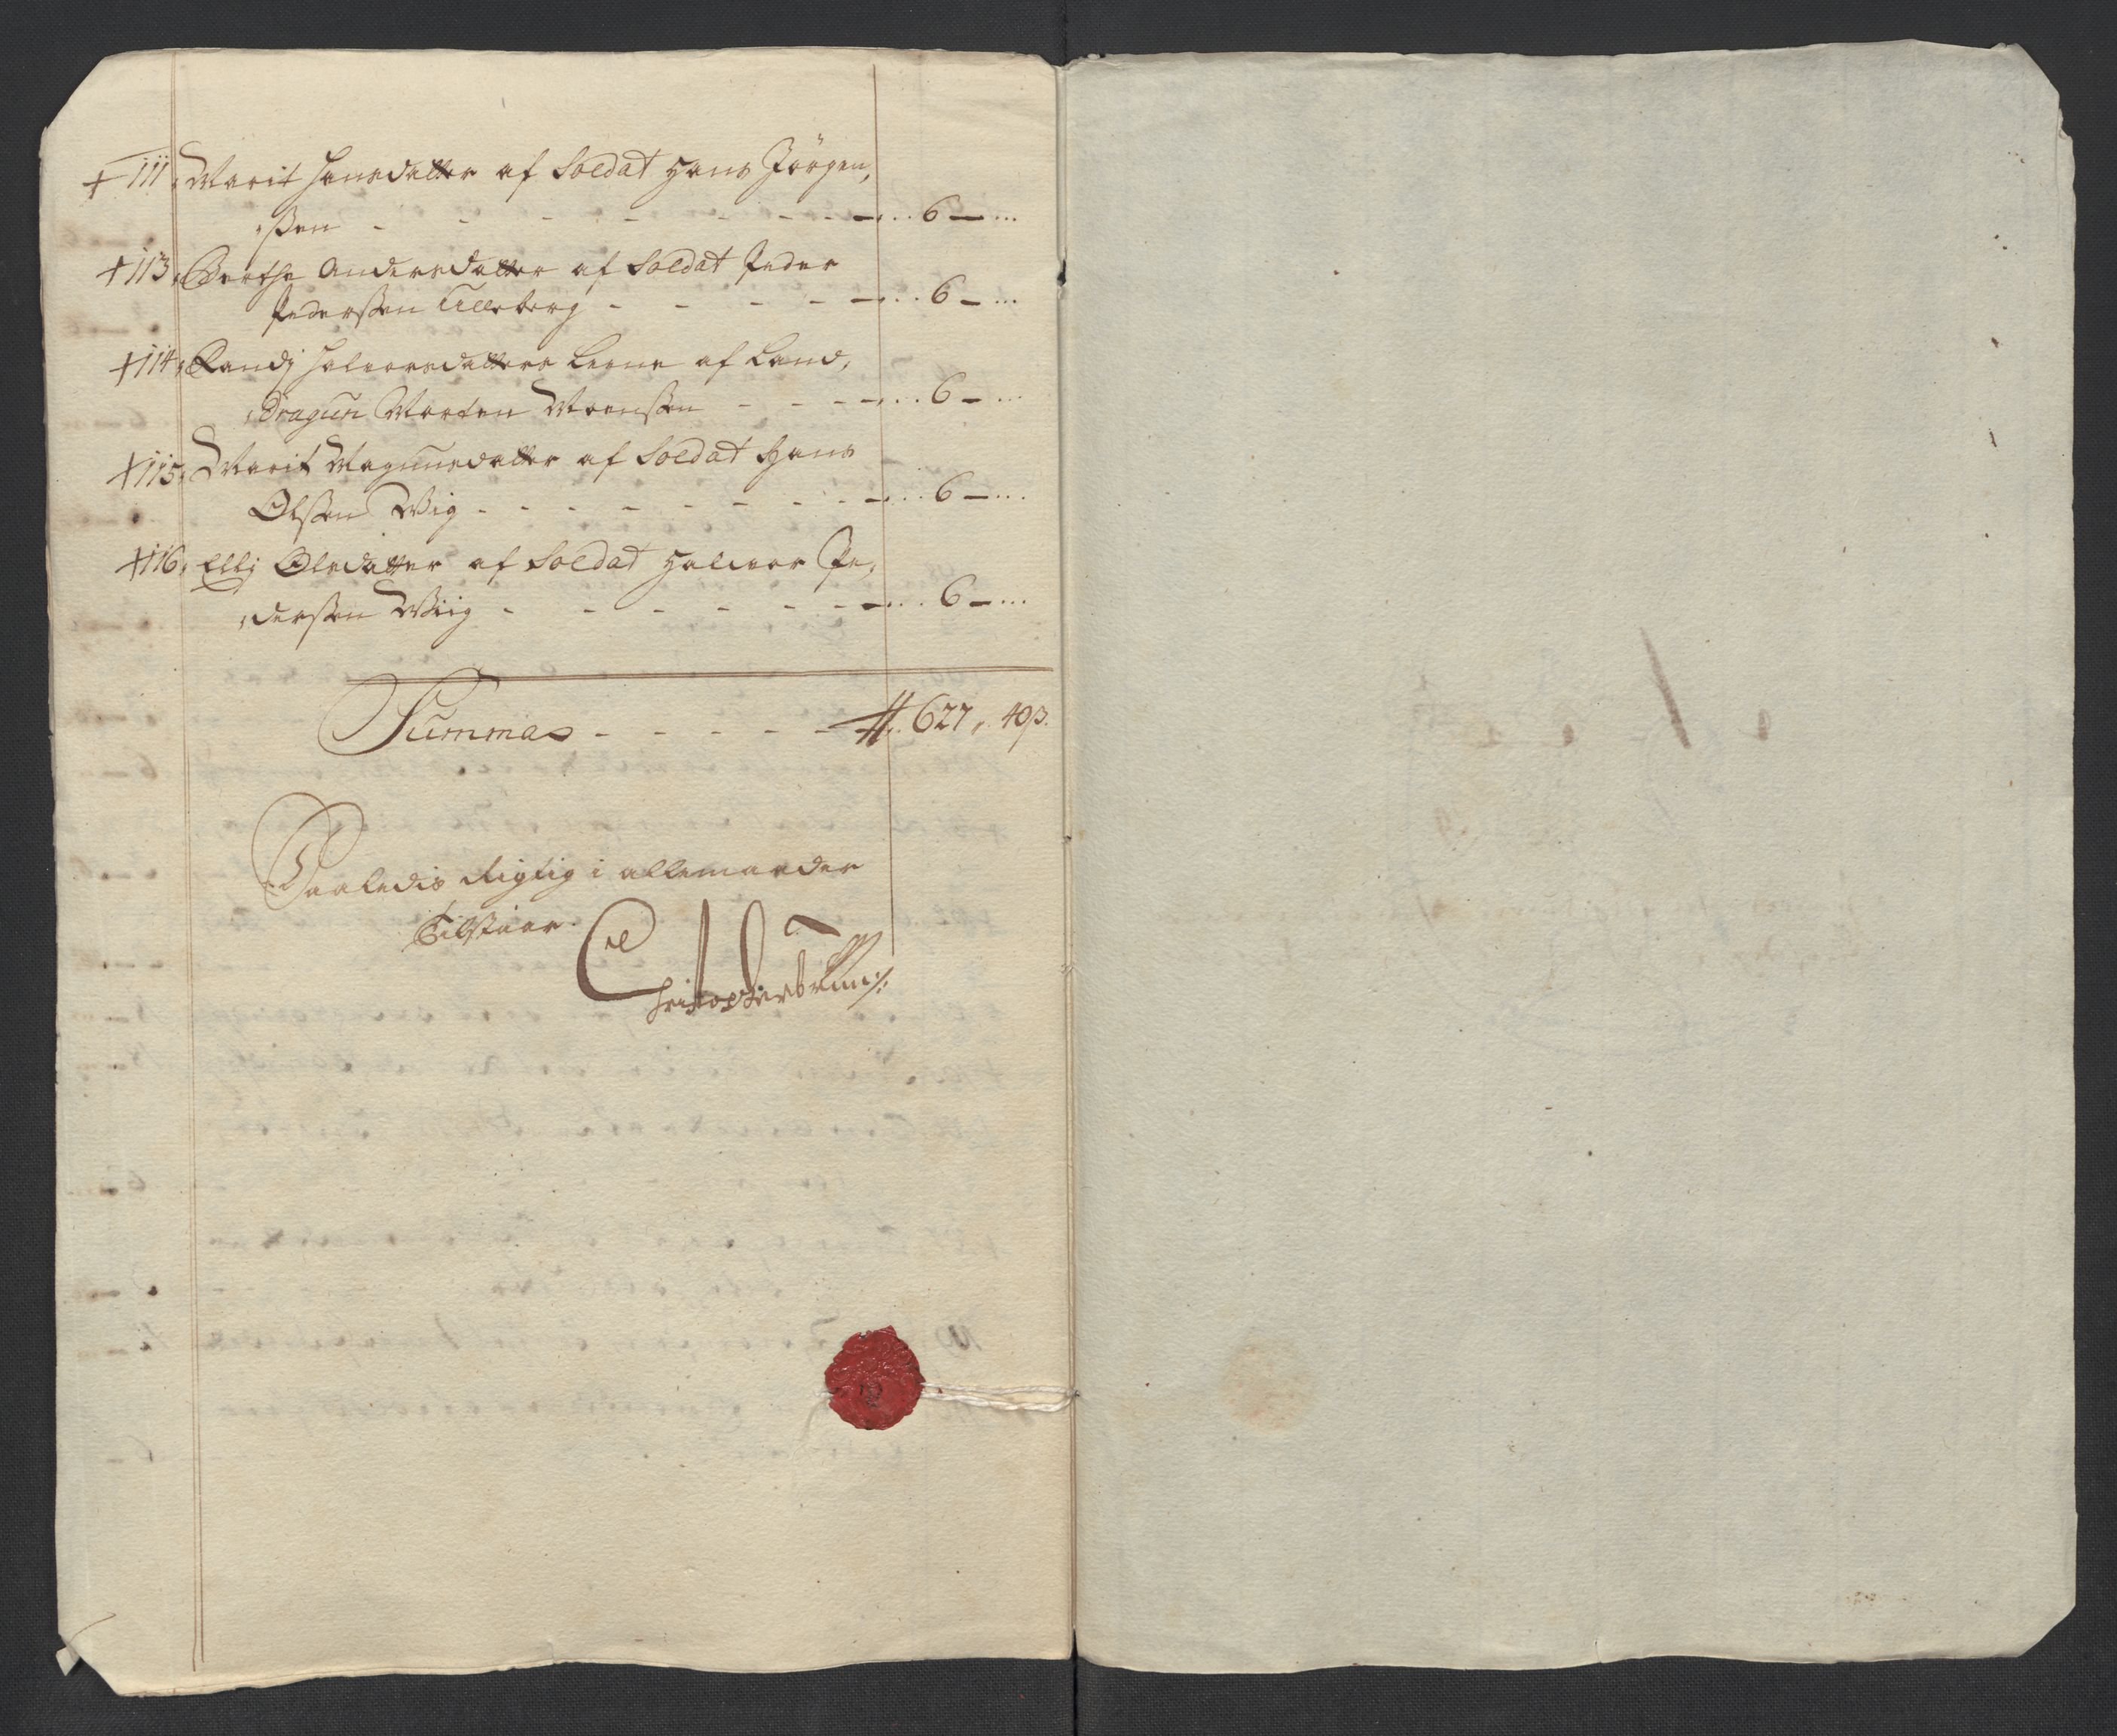 + 111, Marit Hansdatter af Soldat Hans Jörgen,
,ßen - - - - - - - - - . . . 6 — ...
+ 113, Berthe Andersdatter af Soldat Peder
Pederßen Ulleberg - - - - - . . . 6 — ...
+ 114, Randj Halvorsdatters af Land,
,dragun Morten Moenßen - - - - . . . 6 — ...
+ 115, Marit Magnusdatter af Soldat Hans
Olßen Wiig - - - - - - - - - . . . 6 — ...
+ 116, Elli Olsdatter af Soldat Halvor Pe,
,derßen Wiig - - - - - - - . . . 6 — ...
Summa - - - - - - 627,, 40 β.
Saaledis Rigtig i allemaader
Tilstaar.